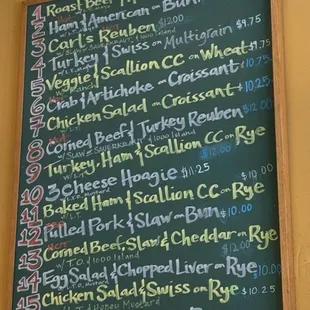 1 Roast Beef
2 Ham & American - Bun
3 Carl's Reuben $12.00
4 Turkey & Swiss on Multigrain $9.75
5 Veggie & Scallion CC on Wheat $9.75
6 Crab & Artichoke on Croissant 10.75
7 Chicken Salad on Croissant 10.25
8 Corned Beef & Turkey Reuben
w/ SLAW or SAUERKRAUT & 1000 Island $12.00
9 Turkey, Ham & Scallion CC on Rye
$12.00
10 3 Cheese Hoagie $11.25
11 Baked Ham & Scallion CC on Rye $10.00
12 Pulled Pork & Slaw on Bun $10.00
13 Corned Beef, Slaw & Cheddar on Rye
w/ T.O. / 1000 Island $12.00
14 Egg Salad & Chopped Liver on Rye $10.00
15 Chicken Salad & Swiss on Rye $10.25
w/ L.T. & Honey Mustard